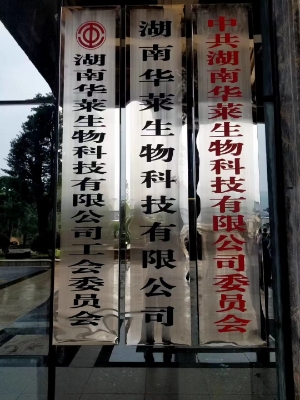 中共湖南华莱生物科技有限公司委员会
湖南华莱生物科技有限公司
湖南华莱生物科技有限公司工会委员会